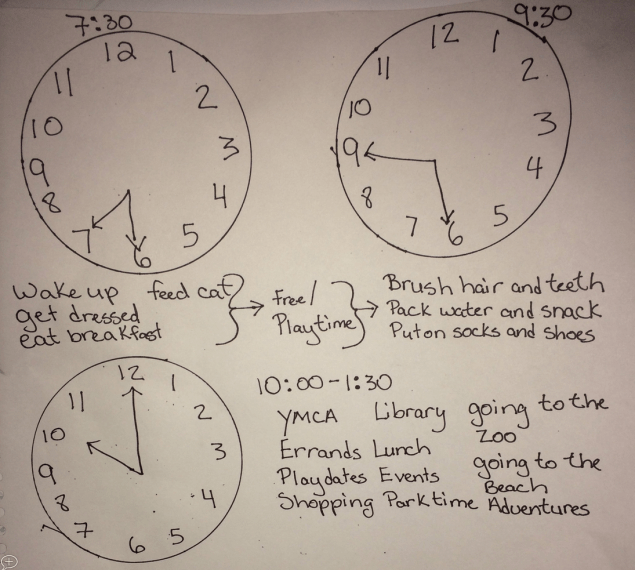 7:30
9:30
12
1
2
3
4
5
6
7
8
9
10
11
12
1
2
3
4
5
6
7
8
9
10
11
Wake up feed cat
get dressed
eat breakfast
Free/
Playtime
Brush hair and teeth
Pack water and snack
Put on socks and shoes
12
1
2
3
4
5
6
7
8
9
10
11
10:00-1:30
YMCA Library going to the
Zoo
Errands Lunch
going to the
Playdates Events
Beach
Shopping Parktime Adventures